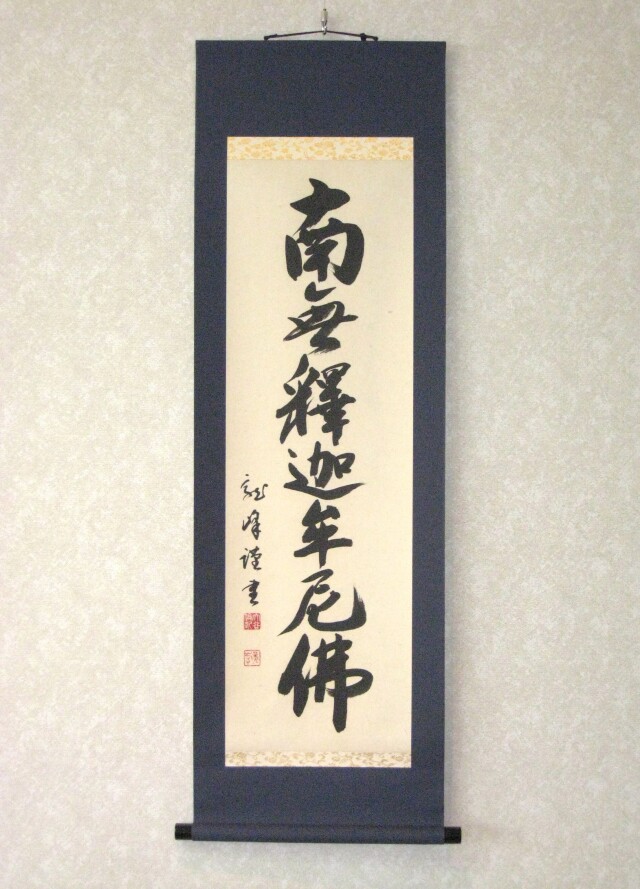 南無釋迦牟尼佛
龍峰謹書